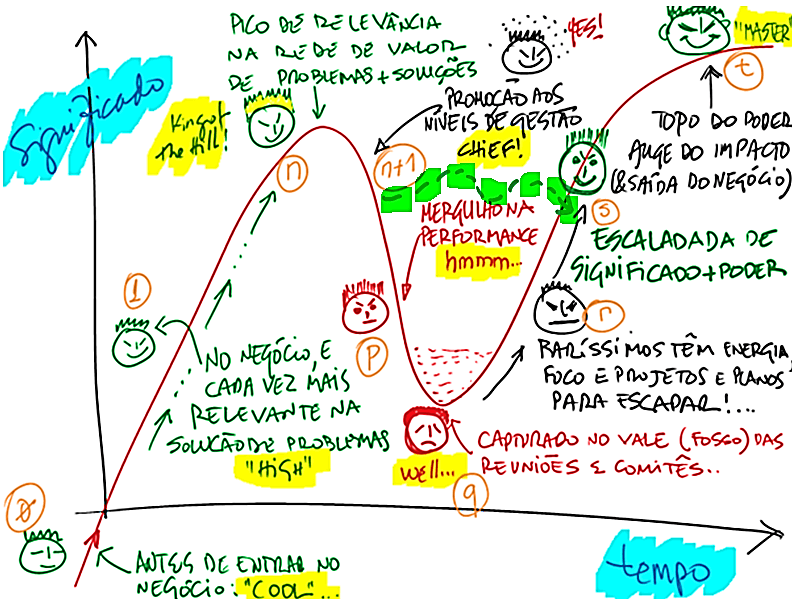 significado
King of
the Hill!
PICO DE RELEVÂNCIA
NA REDE DE VALOR
DE PROBLEMAS+SOLUÇÕES
n
YES!
PROMOÇÃO AOS
NÍVEIS DE GESTÃO
CHIEF!
n+1
"MASTER"
t
TOPO DO PODER
AUGE DO IMPACTO
(& SAÍDA DO NEGÓCIO)
MERGULHO NA
PERFORMANCE
hmmm...
s
ESCALADADA DE
SIGNIFICADO+PODER
1
NO NEGÓCIO, E
CADA VEZ MAIS
RELEVANTE NA
SOLUÇÃO DE PROBLEMAS
"HIGH"
p
r
RARÍSSIMOS TÊM ENERGIA,
FOCO E PROJETOS E PLANOS
PARA ESCAPAR!...
CAPTURADO NO VALE (FOSSO) DAS
REUNIÕES E COMITÊS..
WELL...
q
0
ANTES DE ENTRAR NO
NEGÓCIO: "COOL"...
tempo